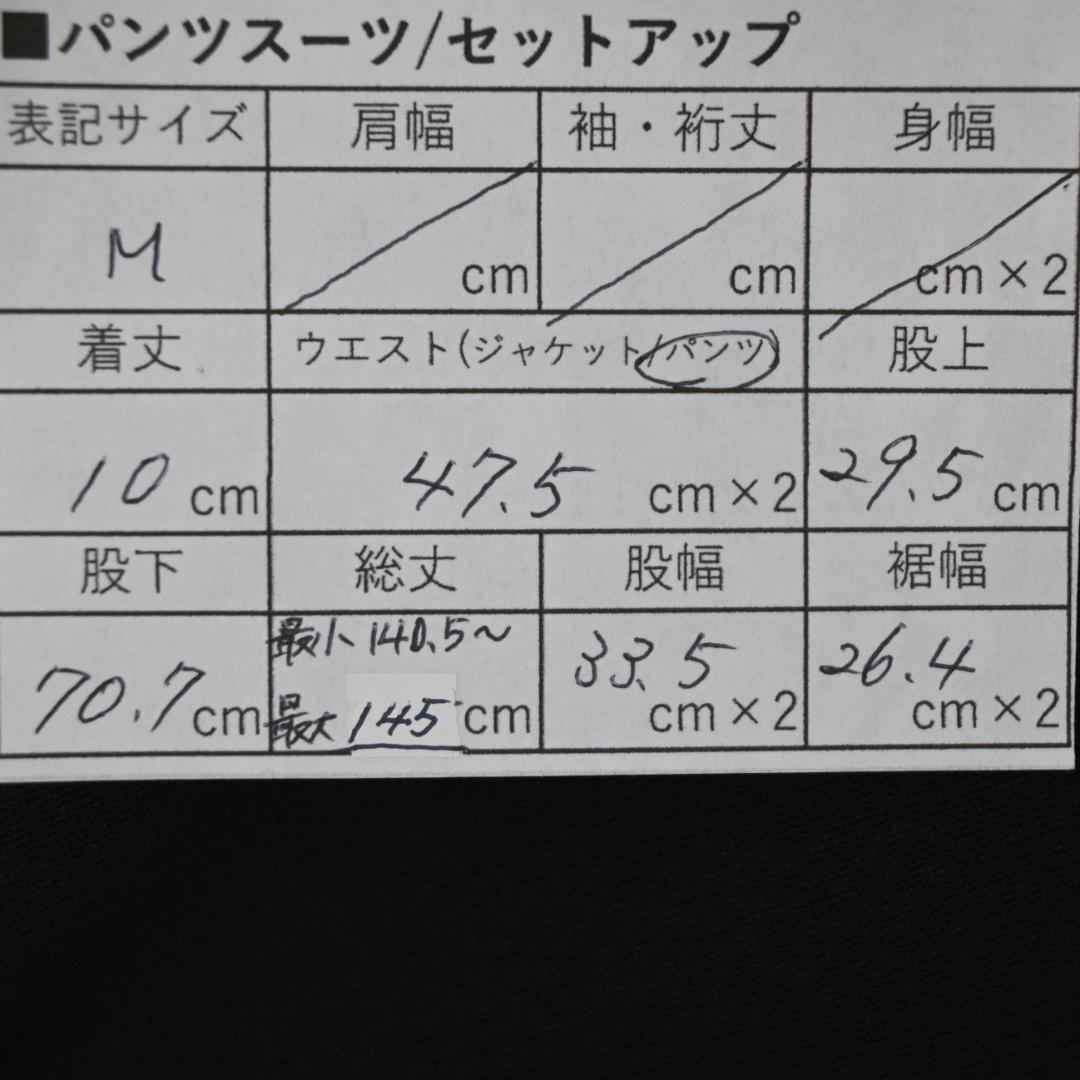 ■パンツスーツ/セットアップ
表記サイズ 肩幅 袖・裄丈 身幅
M cm cm cm×2
着丈 ウエスト(ジャケット/パンツ) 股上
10 cm 47.5 cm×2 29.5 cm
股下 総丈 股幅 裾幅
70.7 cm 最小140.5～ 最大145 cm 33.5 cm×2 26.4 cm×2